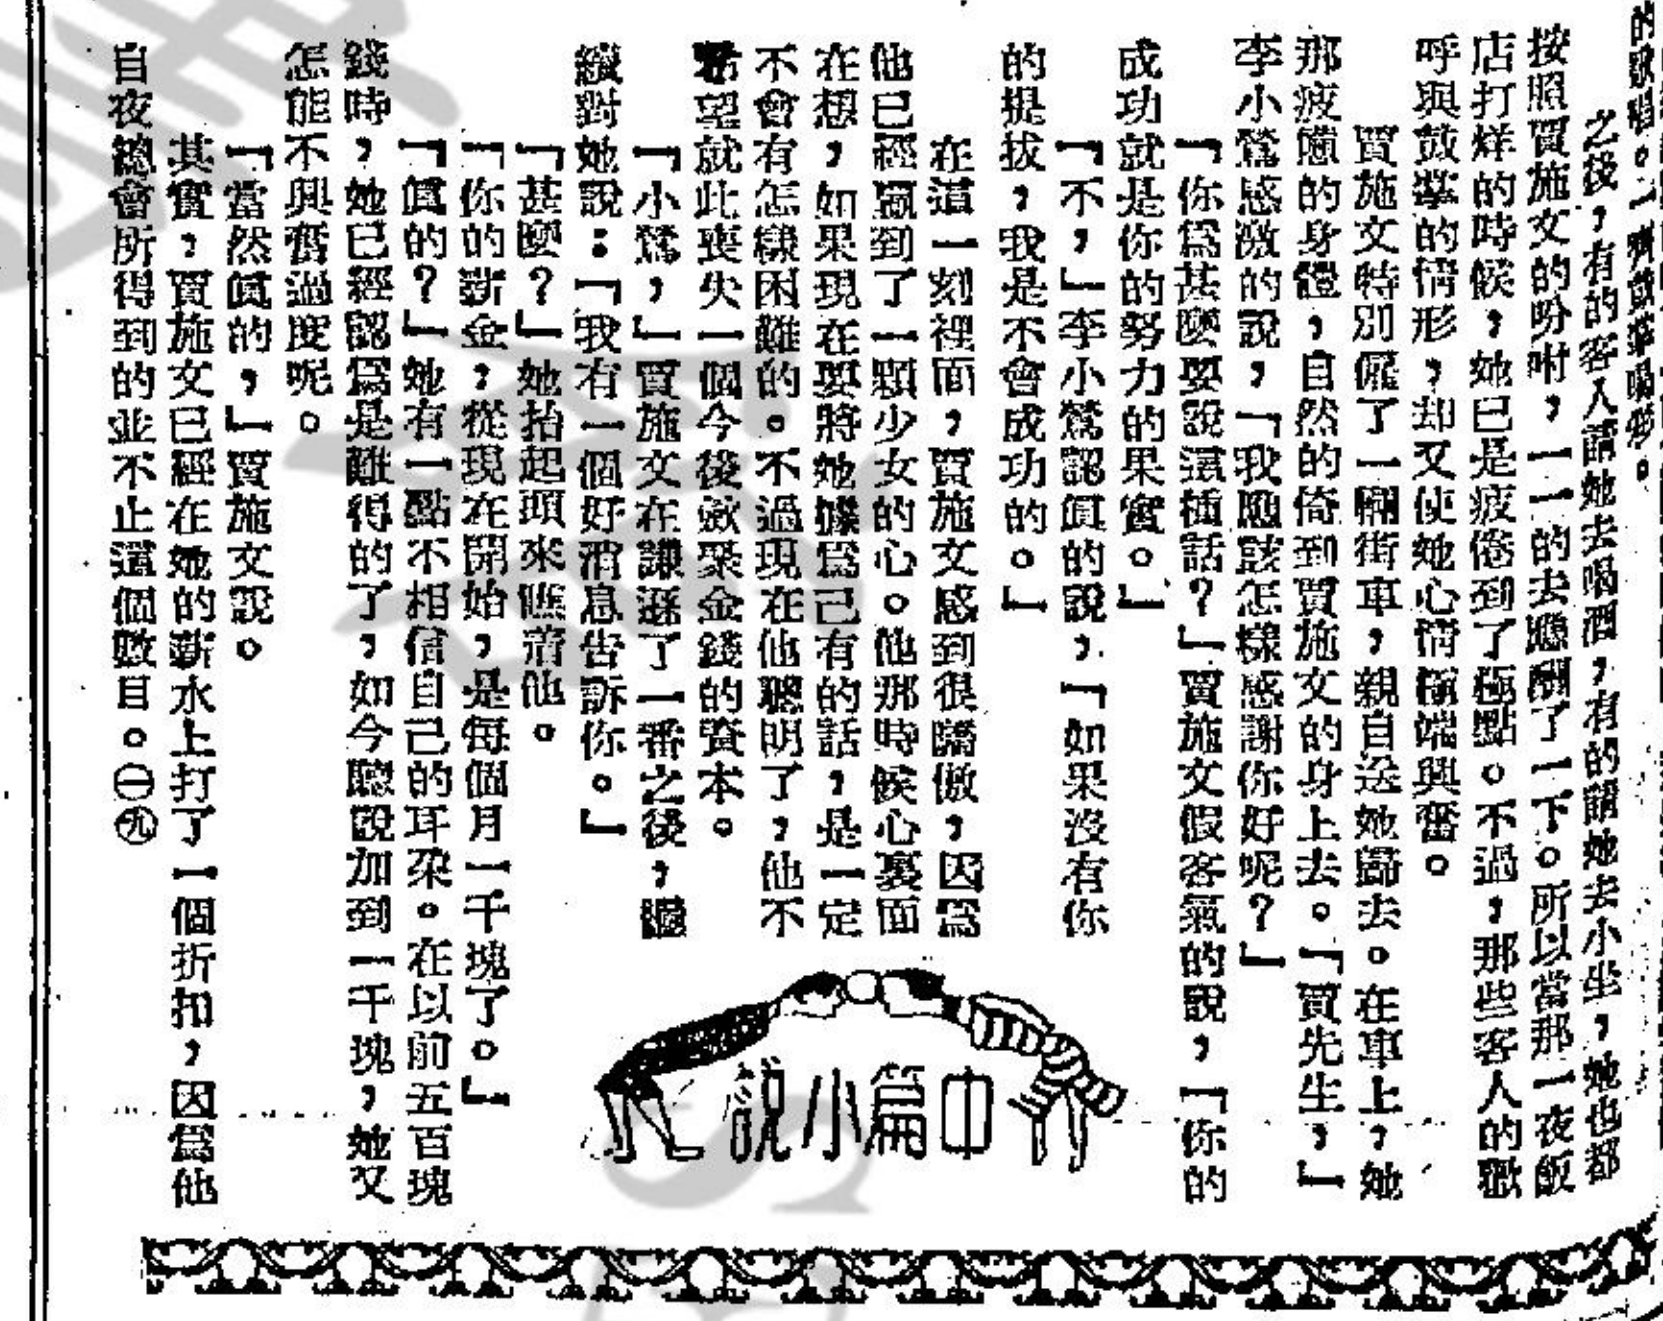 的歌唱。一
之後，有的客人請她去喝酒，有的請她去小坐，她也都
按照賈施文的吩咐，一一的去應酬了一下。所以當那一夜飯
店打烊的時候，她已是疲倦到了極點。不過，那些客人的歡
呼與鼓掌的情形，却又使她心情極端興奮。
賈施文特別僱了一輛街車，親自送她歸去。在車上，她
那疲憊的身體，自然的倚到賈施文的身上去。「賈先生，」
李小鶯感激的說，「我應該怎樣感謝你好呢？」
「你爲甚麼要說這種話？」賈施文假客氣的說，「你的
成功就是你的努力的果實。」
「不，」李小鶯認眞的說，「如果沒有你
的提拔，我是不會成功的。」
在這一刻裡面，賈施文感到很驕傲，因爲
他已經贏到了一顆少女的心。他那時候心裏面
在想，如果現在要將她據爲己有的話，是一定
不會有怎樣困難的。不過現在他聰明了，他不
希望就此喪失一個今後歛聚金錢的資本。
「小鶯，」賈施文在謙遜了一番之後，繼
續對她說：「我有一個好消息告訴你。」
「甚麼？」她抬起頭來瞧着他。
「你的薪金，從現在開始，是每個月一千塊了。」
「眞的？」她有一點不相信自己的耳朶。在以前五百塊
錢時，她已經認爲是難得的了，如今聽說加到一千塊，她又
怎能不興奮過度呢。
「當然眞的，」賈施文說。
其實，賈施文已經在她的薪水上打了一個折扣，因爲他
自夜總會所得到的並不止這個數目。㊀㊈
中篇小說